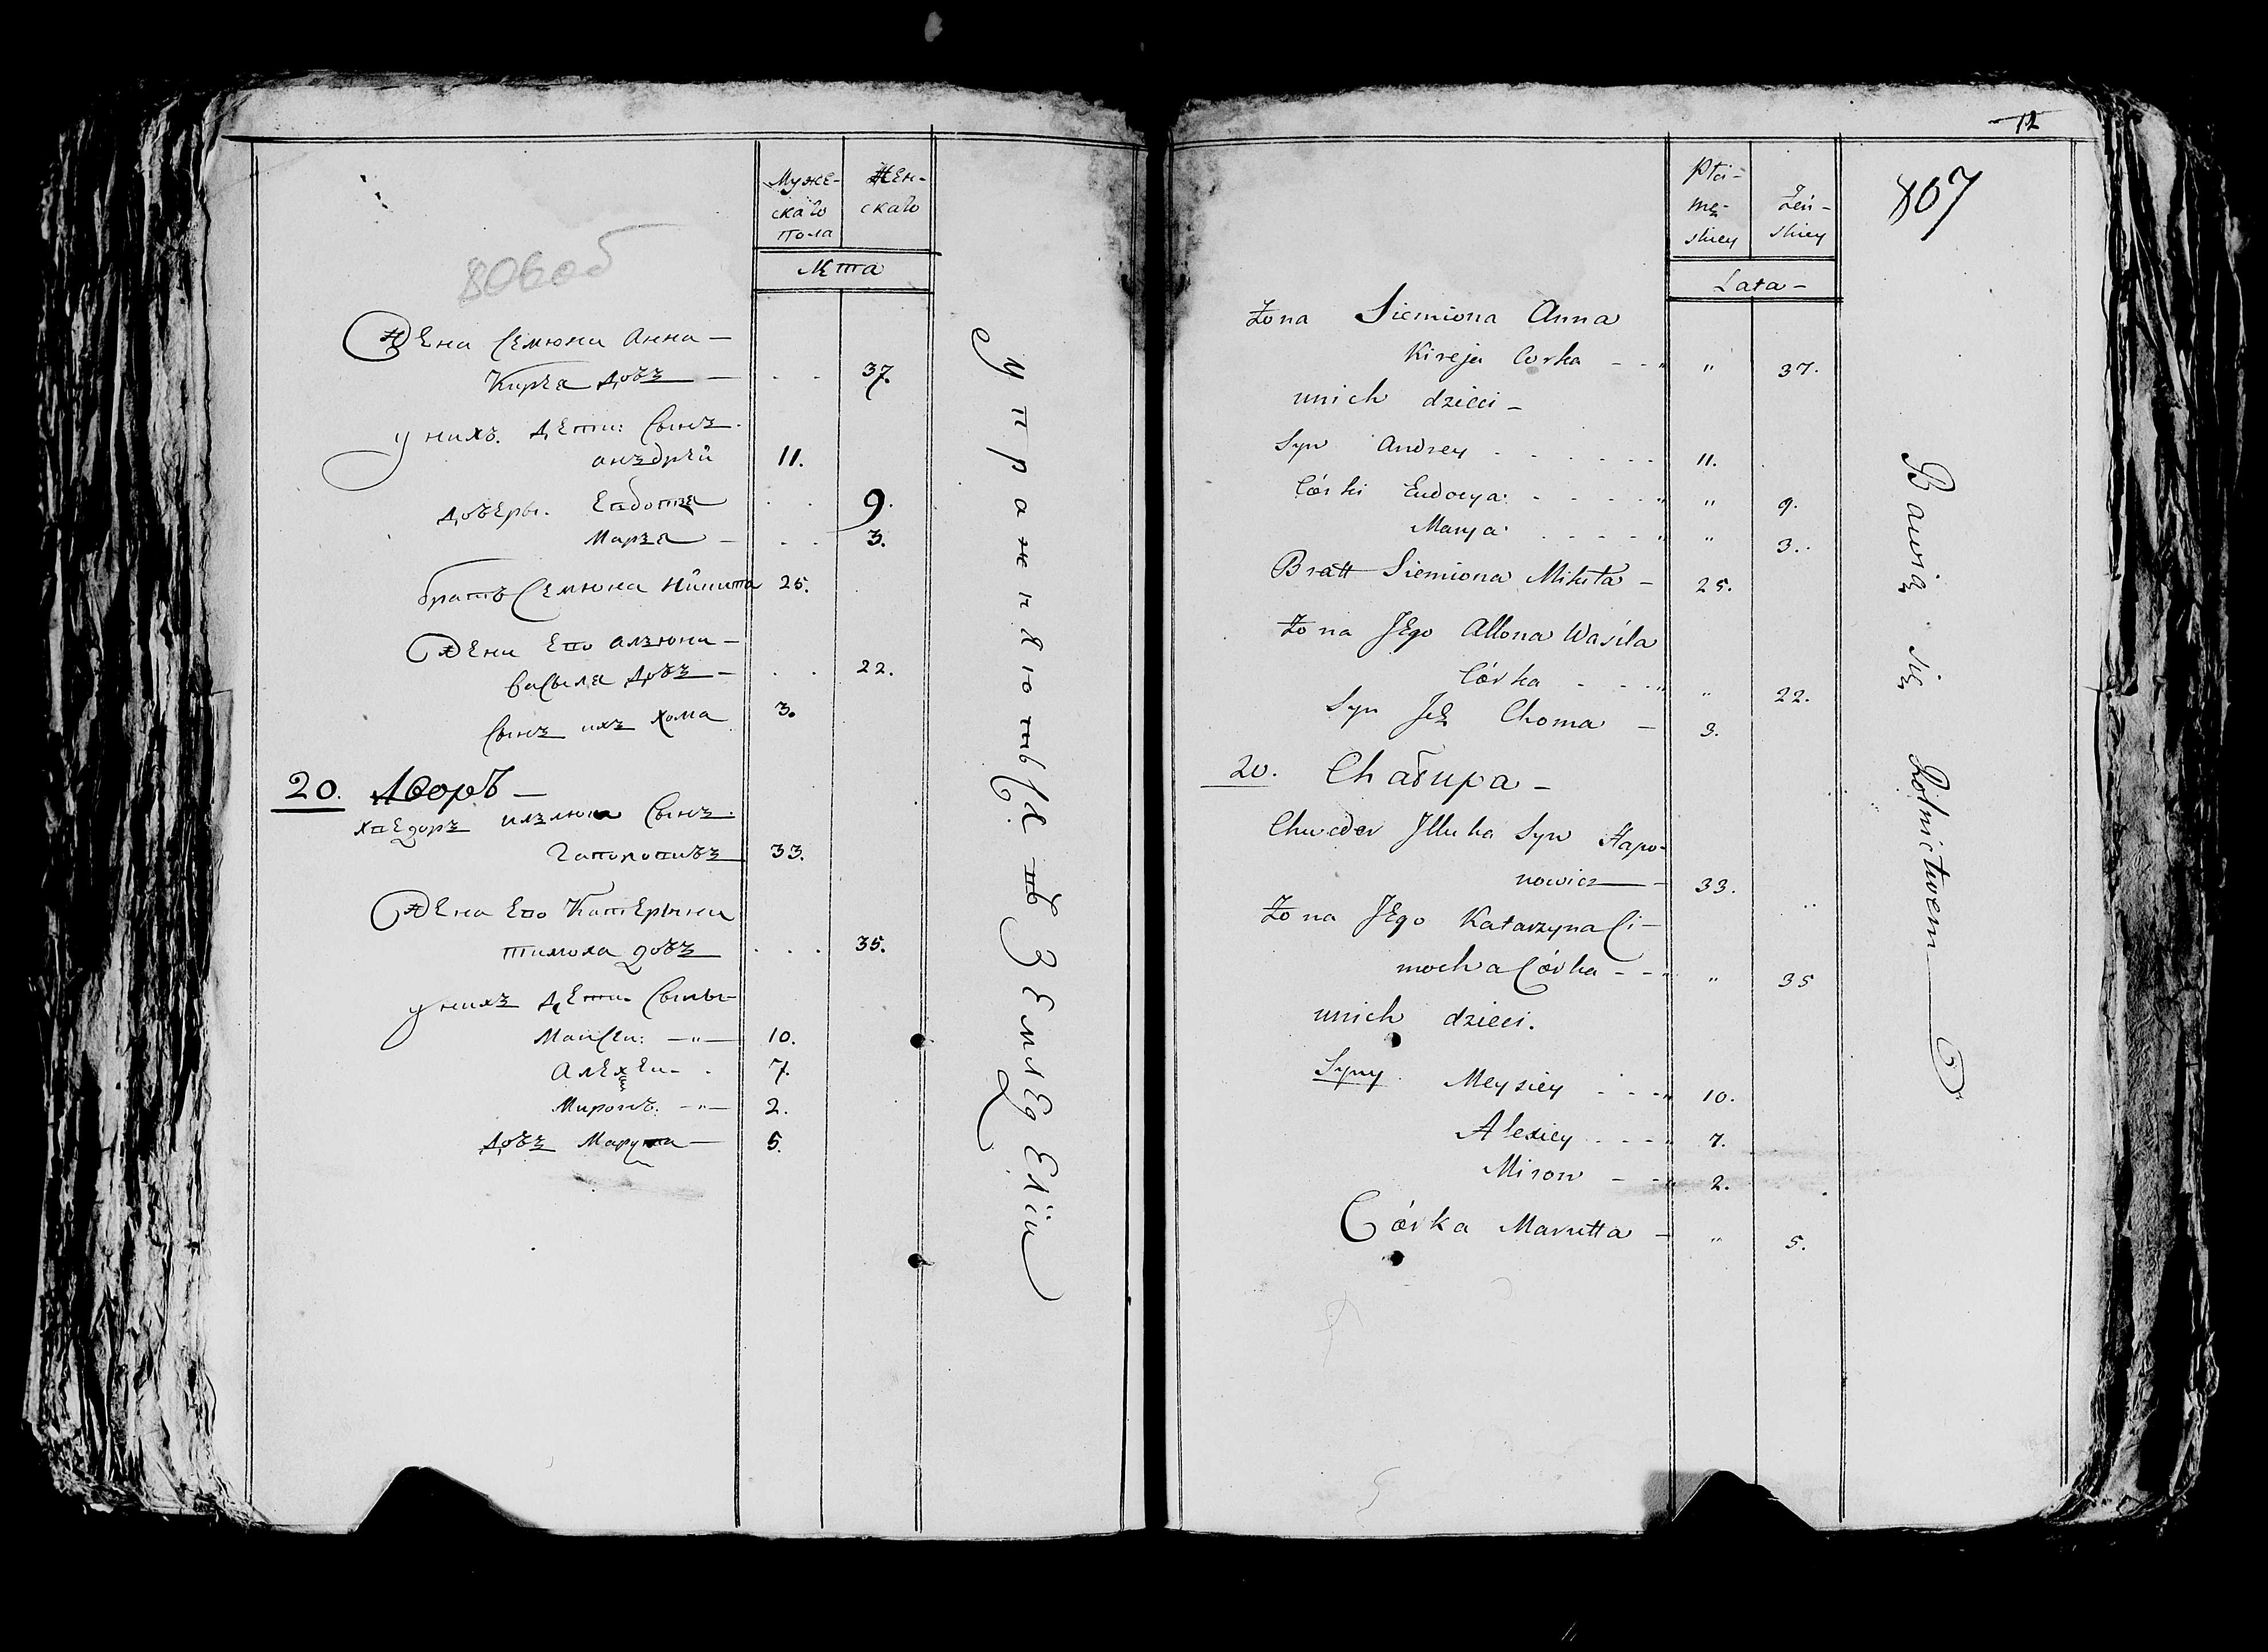 806об
Муже-
скаго
пола
Жен-
скаго
Лета
Жена Семюна Анна —
Кирея дочъ — 37.
у нихъ дети: Сынъ
анъдрей 11.
дочеры. Евдотя 9.
Маръя — 3.
братъ Семюна Микита 25.
Жена Его алзюна —
васыля дочъ — 22.
Сынъ ихъ Хома 3.
20. Дворъ —
Хведоръ илълюка Сынъ
Гапоновичъ 33.
Жена Его Катерына
тимоха дочъ 35.
у нихъ дети Сыны-
Майсей: —"— 10.
Алексей - . 7.
Миронъ. —"— 2.
дочъ Марута — 5.
Упражняются в Земледелии
12
807
Płci-
mę-
skiey
Żeń-
skiey
Lata -
Żona Siemiona Anna
Kireja Corka - - " " 37.
unich dzieci -
Syn Andrey - - - - - - 11.
Córki Eudocya: - - - - " " 9.
Marya: - - - - " " 3.
Bratt Siemiona Mikita - 25.
Żona JEgo Allona Wasila
Córka - - " " 22.
Syn Jch Choma - 3.
20. Chałupa -
Chwedor Jlluka Syn Hapo-
nowicz — 33.
Żona JEgo Katarzyna Ci-
mocha Córka - - " " 35
unich dzieci.
Syny. Meysiey - - - " 10.
Alexiey - - - " 7.
Miron - - " 2.
Córka Marutta - " 5.
Bawią się Rolnictwem